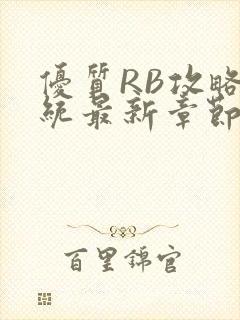 優質RB攻略
統最新章節
百里錦官